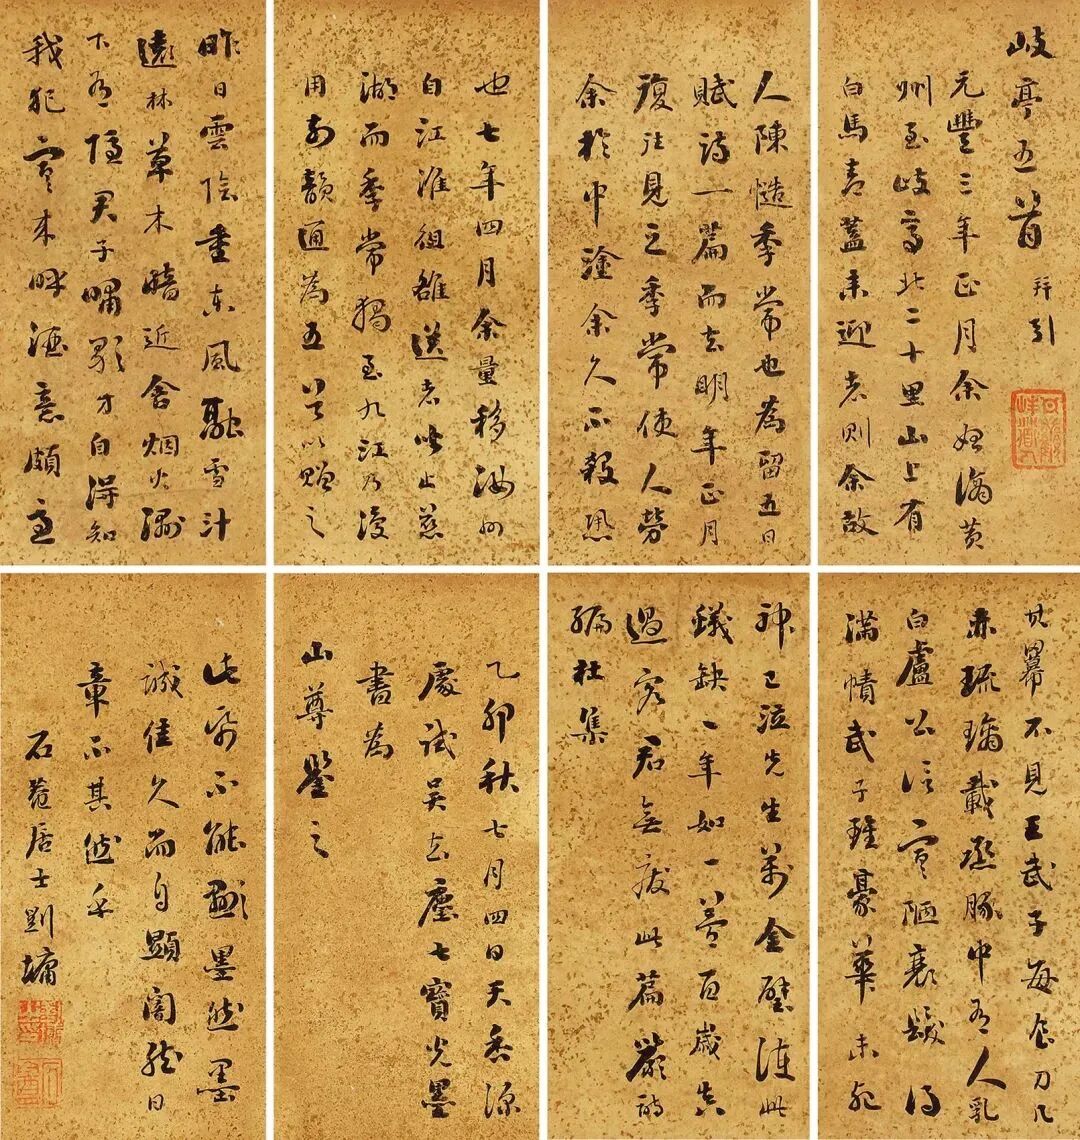 岐亭五首 并引
元豐三年正月余始謫黃
州至岐亭北二十里山上有
白馬青蓋来迎者則余故
人陳慥季常也為留五日
賦詩一篇而去明年正月
復往見之季常使人勞
余於中塗余久不殺恐
也七年四月余量移汝州
自江淮徂雒送者皆止慈
湖而季常獨至九江乃復
用前韻通為五首以贈之
昨日雲陰重東風融雪汁
遠林草木暗近舍烟火濕
下有隱君子嘯歌方自得知
我犯寒来呼酒意頗急
其冪不見王武子每食刀几
赤琉璃載烝豚中有人乳
白盧公信寒陋衰髮得
滿幘武子雖豪華未死
神已泣先生萬金璧護此
蟻缺一年如一夢百歲真
過客君無廢此篇嚴詩
編杜集
乙卯秋七月四日天香深
處試吴去塵七寶光墨
書為
山尊鑒之
此紙不能墨然墨
誠佳久而自顯闇然日
章不其然乎
石菴居士劉墉